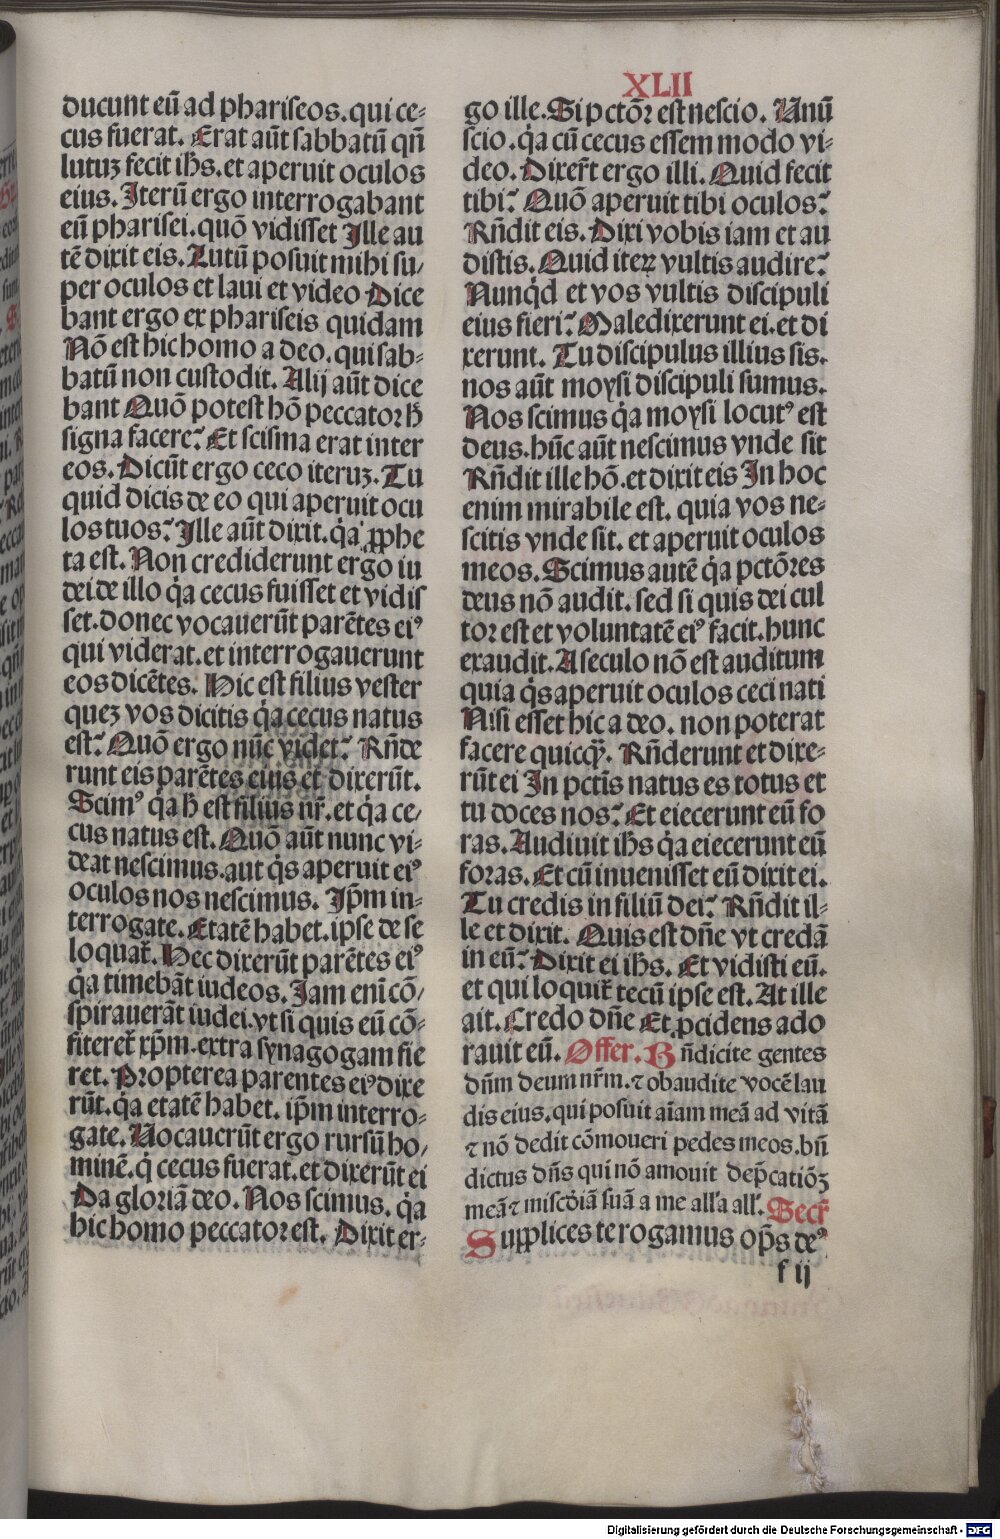 XLII
ducunt eū ad phariseos. qui ce⸗
cus fuerat. Erat aūt sabbatū qn̄
lutuꝫ fecit ih̄s. et aperuit oculos
eius. Iterū ergo interrogabant
eū pharisei. quō vidisset Ille au
tē dixit eis. Lutū posuit mihi su⸗
per oculos et laui et video Dice
bant ergo ex phariseis quidam
Nō est hic homo a deo. qui sab⸗
batū non custodit. Alij aūt dice
bant Quō potest hō peccator h̄
signa facere? Et scisma erat inter
eos. Dicūt ergo ceco iteruꝫ. Tu
quid dicis de eo qui aperuit ocu
los tuos? Ille aūt dixit. q̇a ꝓphe
ta est. Non crediderunt ergo iu
dei de illo q̇a cecus fuisset et vidis
set. donec vocauerūt parētes eiꝰ
qui viderat. et interrogauerunt
eos dicētes. Hic est filius vester
quez vos dicitis q̇a cecus natus
est? Quō ergo nūc videt? Rn̄de
runt eis parētes eius et dixerūt.
Scimꝰ q̇a h̄ est filius nr̄. et q̇a ce⸗
cus natus est. Quō aūt nunc vi⸗
deat nescimus. aut q̇s aperuit eiꝰ
oculos nos nescimus. Ip̄m in⸗
terrogate. Etatē habet. ipse de se
loquat᷑. Hec dixerūt parētes eiꝰ
q̇a timebāt iudeos. Iam enī cō⸗
spirauerāt iudei. vt si quis eū cō⸗
fiteret᷑ xp̄m. extra synagogam fie
ret. Propterea parentes eiꝰ dixe
rūt. q̇a etatē habet. ip̄m interro⸗
gate. Vocauerūt ergo rursū ho⸗
minē. q̇ cecus fuerat. et dixerūt ei
Da gloriā deo. Nos scimus. q̇a
hic homo peccator est. Dixit er⸗
go ille. Si pctōr est nescio. Vnū
scio. q̇a cū cecus essem modo vi⸗
deo. Dixer̄t ergo illi. Quid fecit
tibi? Quō aperuit tibi oculos?
Rn̄dit eis. Dixi vobis iam et au
distis. Quid iteꝝ vultis audire?
Nunq̇d et vos vultis discipuli
eius fieri? Maledixerunt ei. et di
xerunt. Tu discipulus illius sis.
nos aūt moysi discipuli sumus.
Nos scimus q̇a moysi locutꝰ est
deus. hūc aūt nescimus vnde sit
Rn̄dit ille hō. et dixit eis In hoc
enim mirabile est. quia vos ne⸗
scitis vnde sit. et aperuit oculos
meos. Scimus autē q̇a pctōres
deus nō audit. sed si quis dei cul
tor est et voluntatē eiꝰ facit. hunc
exaudit. A seculo nō est auditum
quia q̇s aperuit oculos ceci nati
Nisi esset hic a deo. non poterat
facere quicqꝫ. Rn̄derunt et dixe⸗
rūt ei In pctīs natus es totus et
tu doces nos? Et eiecerunt eū fo
ras. Audiuit ih̄s q̇a eiecerunt eū
foras. Et cū inuenisset eū dixit ei.
Tu credis in filiū dei? Rn̄dit il⸗
le et dixit. Quis est dn̄e vt credā
in eū? Dixit ei ih̄s. Et vidisti eū.
et qui loquit᷑ tecū ipse est. At ille
ait. Credo dn̄e Et ꝓcidens ado
rauit eū. Offer. Bn̄dicite gentes
dn̄m deum nr̄m. ⁊ obaudite vocē lau
dis eius. qui posuit aīam meā ad vitā
⁊ nō dedit cōmoueri pedes meos. bn̄
dictus dn̄s qui nō amouit dep̄catiōꝫ
meā ⁊ miscd̓iā suā a me alla all. Secr̄
Supplices te rogamus op̄s deꝰ
f ij
Digitalisierung gefördert durch die Deutsche Forschungsgemeinschaft - DFG